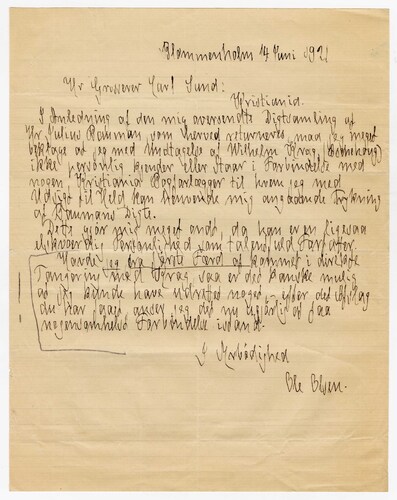 Blommenholm 4 Juni 1921
Hr Grosserer Carl Sund:
Kristiania.
I Anledning af den mig oversendte Digtsamling af
Hr. Julius Bauman som herved returneres, maa jeg meget
beklage at jeg med Undtagelse af Wilhelm Krag,
ikke personlig kjender eller staar i Forbindelse med
nogen Kristiania Bogforlægger til hvem jeg med
Udsigt til Held kan henvende mig angaaende Trykning
af Baumans Digte.
Dets gjør mig meget ondt, da han er en ligesaa
elskværdig Personlighed som talentfuld Forfatter.
Havde jeg fra første Færd af kommet i direkte
med Krag saa er det kanske mulig
at jeg kunde have udrettet noget, efter det Afslag
du har faaet anser jeg det nu ugjørligt at faa
nogensomhelst Forbindelse istand.
I Ærbødighed
Ole Olsen.